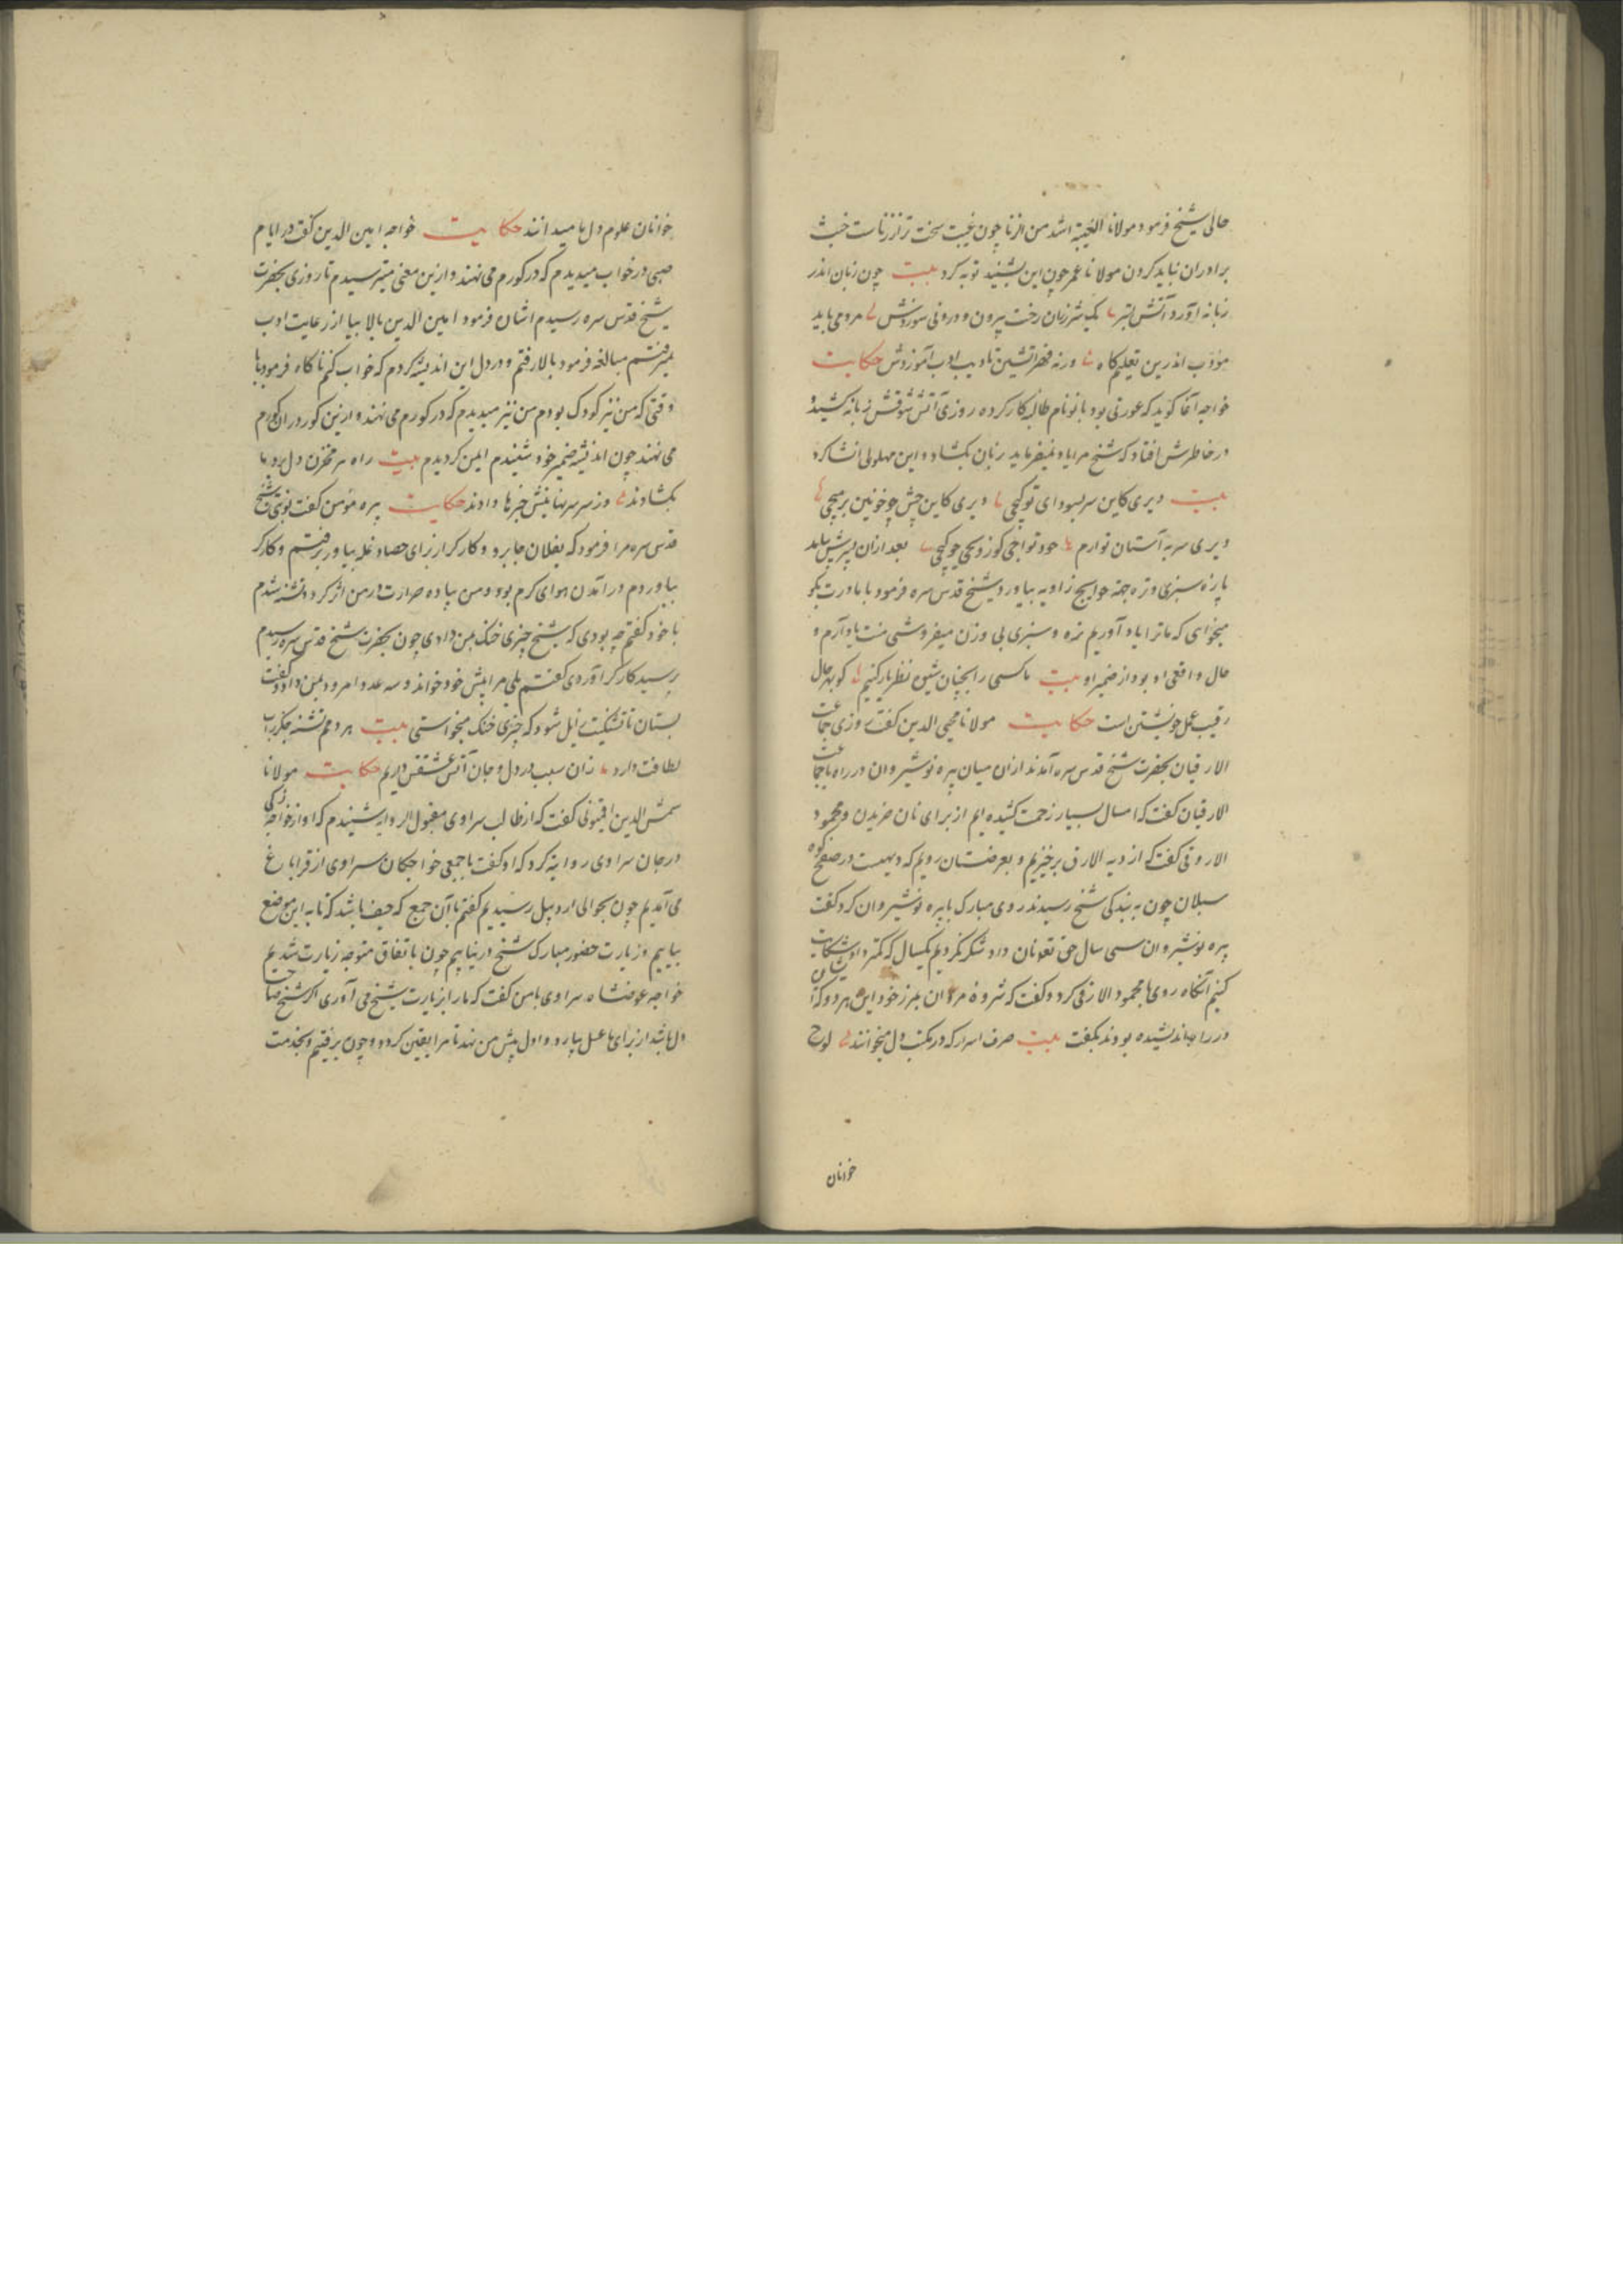 حالی شیخ فرمود مولانا الغیبة اشد من الزنا چون غیبت سخت تر از زناست خبث
برادران نباید کردن مولانا عمر چون این بشنید توبه کرد بیت چون زبان اندر
زبانه آورد آتش رخت بیرون و درونی سوزدش مردمی باید
مؤدب اندرین تعلیم گاه ورنه قهر آتشین تادیب ادب آموزدش حکایت
خواجه آغا گوید که عورتی بود بانو نام طالبه کار کرده روزی آتش شوقش زبانه کشید و
در خاطرش افتاد که شیخ مرا یاد نمیفرماید زبان بگشاد و این پهلوی انشا کرد
بیت دیری کاین سر بسودای تو گیجی دیری کاین چش چو خونین
دیری سر به آستان تو دارم بعد از آن پسرش بیامد
پاره سبزی و تره جهة حوایج زاویه بیاورد شیخ قدس سره فرمود با مادرت بگو
میخواهی که ما ترا یاد آوریم تره و سبزی بی وزن میفروشی منت یاد آرم و
حال واقعی او بود از ضمیر او بیت ما کسی را نظر باز کنیم کو بهر حال
رقیب عمل خویشتن است حکایت مولانا محیی الدین گفت روزی جماعت
الارقیان بحضرت شیخ قدس سره آمدند از آن میان پیره نوشیروان در راه با جماعت
الارقیان گفت که امسال بسیار زحمت کشیده ایم از برای نان خریدن و محمود
الاروقی گفت که از دیه الارق برخیزیم و بعرضستان رویم که دیهیست در صفح کوه
سبلان چون به بندگی شیخ رسیدند روی مبارک با پیره نوشیروان کرد و گفت
پیره نوشیروان سی سال حق تع نان داد شکر نکردیم یکسال که کمتر داد شکایت
کنیم آنگاه روی با محمود الارقی کرد و گفت که مردان بلرز خود ایشان هر دو که
در راه اندیشیده بودند بگفت بیت صرف اسرار که در مکتب دل میخوانند لوح
خوانان
خوانان علوم دل ما میدانند حکایت خواجه امین الدین گفت در ایام
صبی در خواب میدیدم که در گورم می نهند و ازین معنی میترسیدم تا روزی بحضرت
شیخ قدس سره رسیدم اشان فرمود امین الدین بالا بیا از رعایت ادب
نمیرفتم مبالغه فرمود بالا رفتم و در دل این اندیشه کردم که خواب کنم ناگاه فرمود
وقتی که من نیز کودک بودم من نیز میدیدم که در گورم می نهند و ازین گور در آن گورم
می نهند چون اندیشه ضمیر خود شنیدم ایمن گردیدم بیت راه سر مخزن دل بر وی ما
بگشادند وز سر سر نهانیش خبرها دادند حکایت پیره مؤمن گفت نوبتی شیخ
قدس سره مرا فرمود که بفلان جا برو و کارگر از برای حصاد غله بیاور برفتم و کارگر
بیاوردم در آمدن هوای گرم بود و من پیاده حرارت در من اثر کرد و تشنه شدم
با خود گفتم چه بودی که شیخ چیزی خنک بمن دادی چون بحضرت شیخ قدس سره رسیدم
پرسید کارگر آوردی گفتم بلی مرا پیش خود خواند و سه عدد امرود بمن داد و گفت
بستان تا تشنگیت زایل شود که چیزی خنک میخواستی بیت هر دمم تشنه جگر آب
لطافت دارد زان سبب در دل و جان آتش عشقش داریم حکایت مولانا
شمس الدین گفت که از طالب سراوی مقبول الروایه شنیدم که او از خواجه زکی
درجان سراوی روایة کرد که او گفت با جمعی خواجگان سراوی از قراباغ
می آمدیم چون بحوالی اردبیل رسیدیم گفتم با آن جمع که حیف باشد که تا به این موضع
بیاییم و زیارت حضور مبارک شیخ در نیابیم چون باتفاق متوجه زیارت شدیم
خواجه عوضشاه سراوی با من گفت که ما را بزیارت شیخ می آوری اگر شیخ صاحب
دل باشد از برای ما عسل بیارد و اول پیش من نهد تا مرا یقین گردد و چون برفتیم و بخدمت